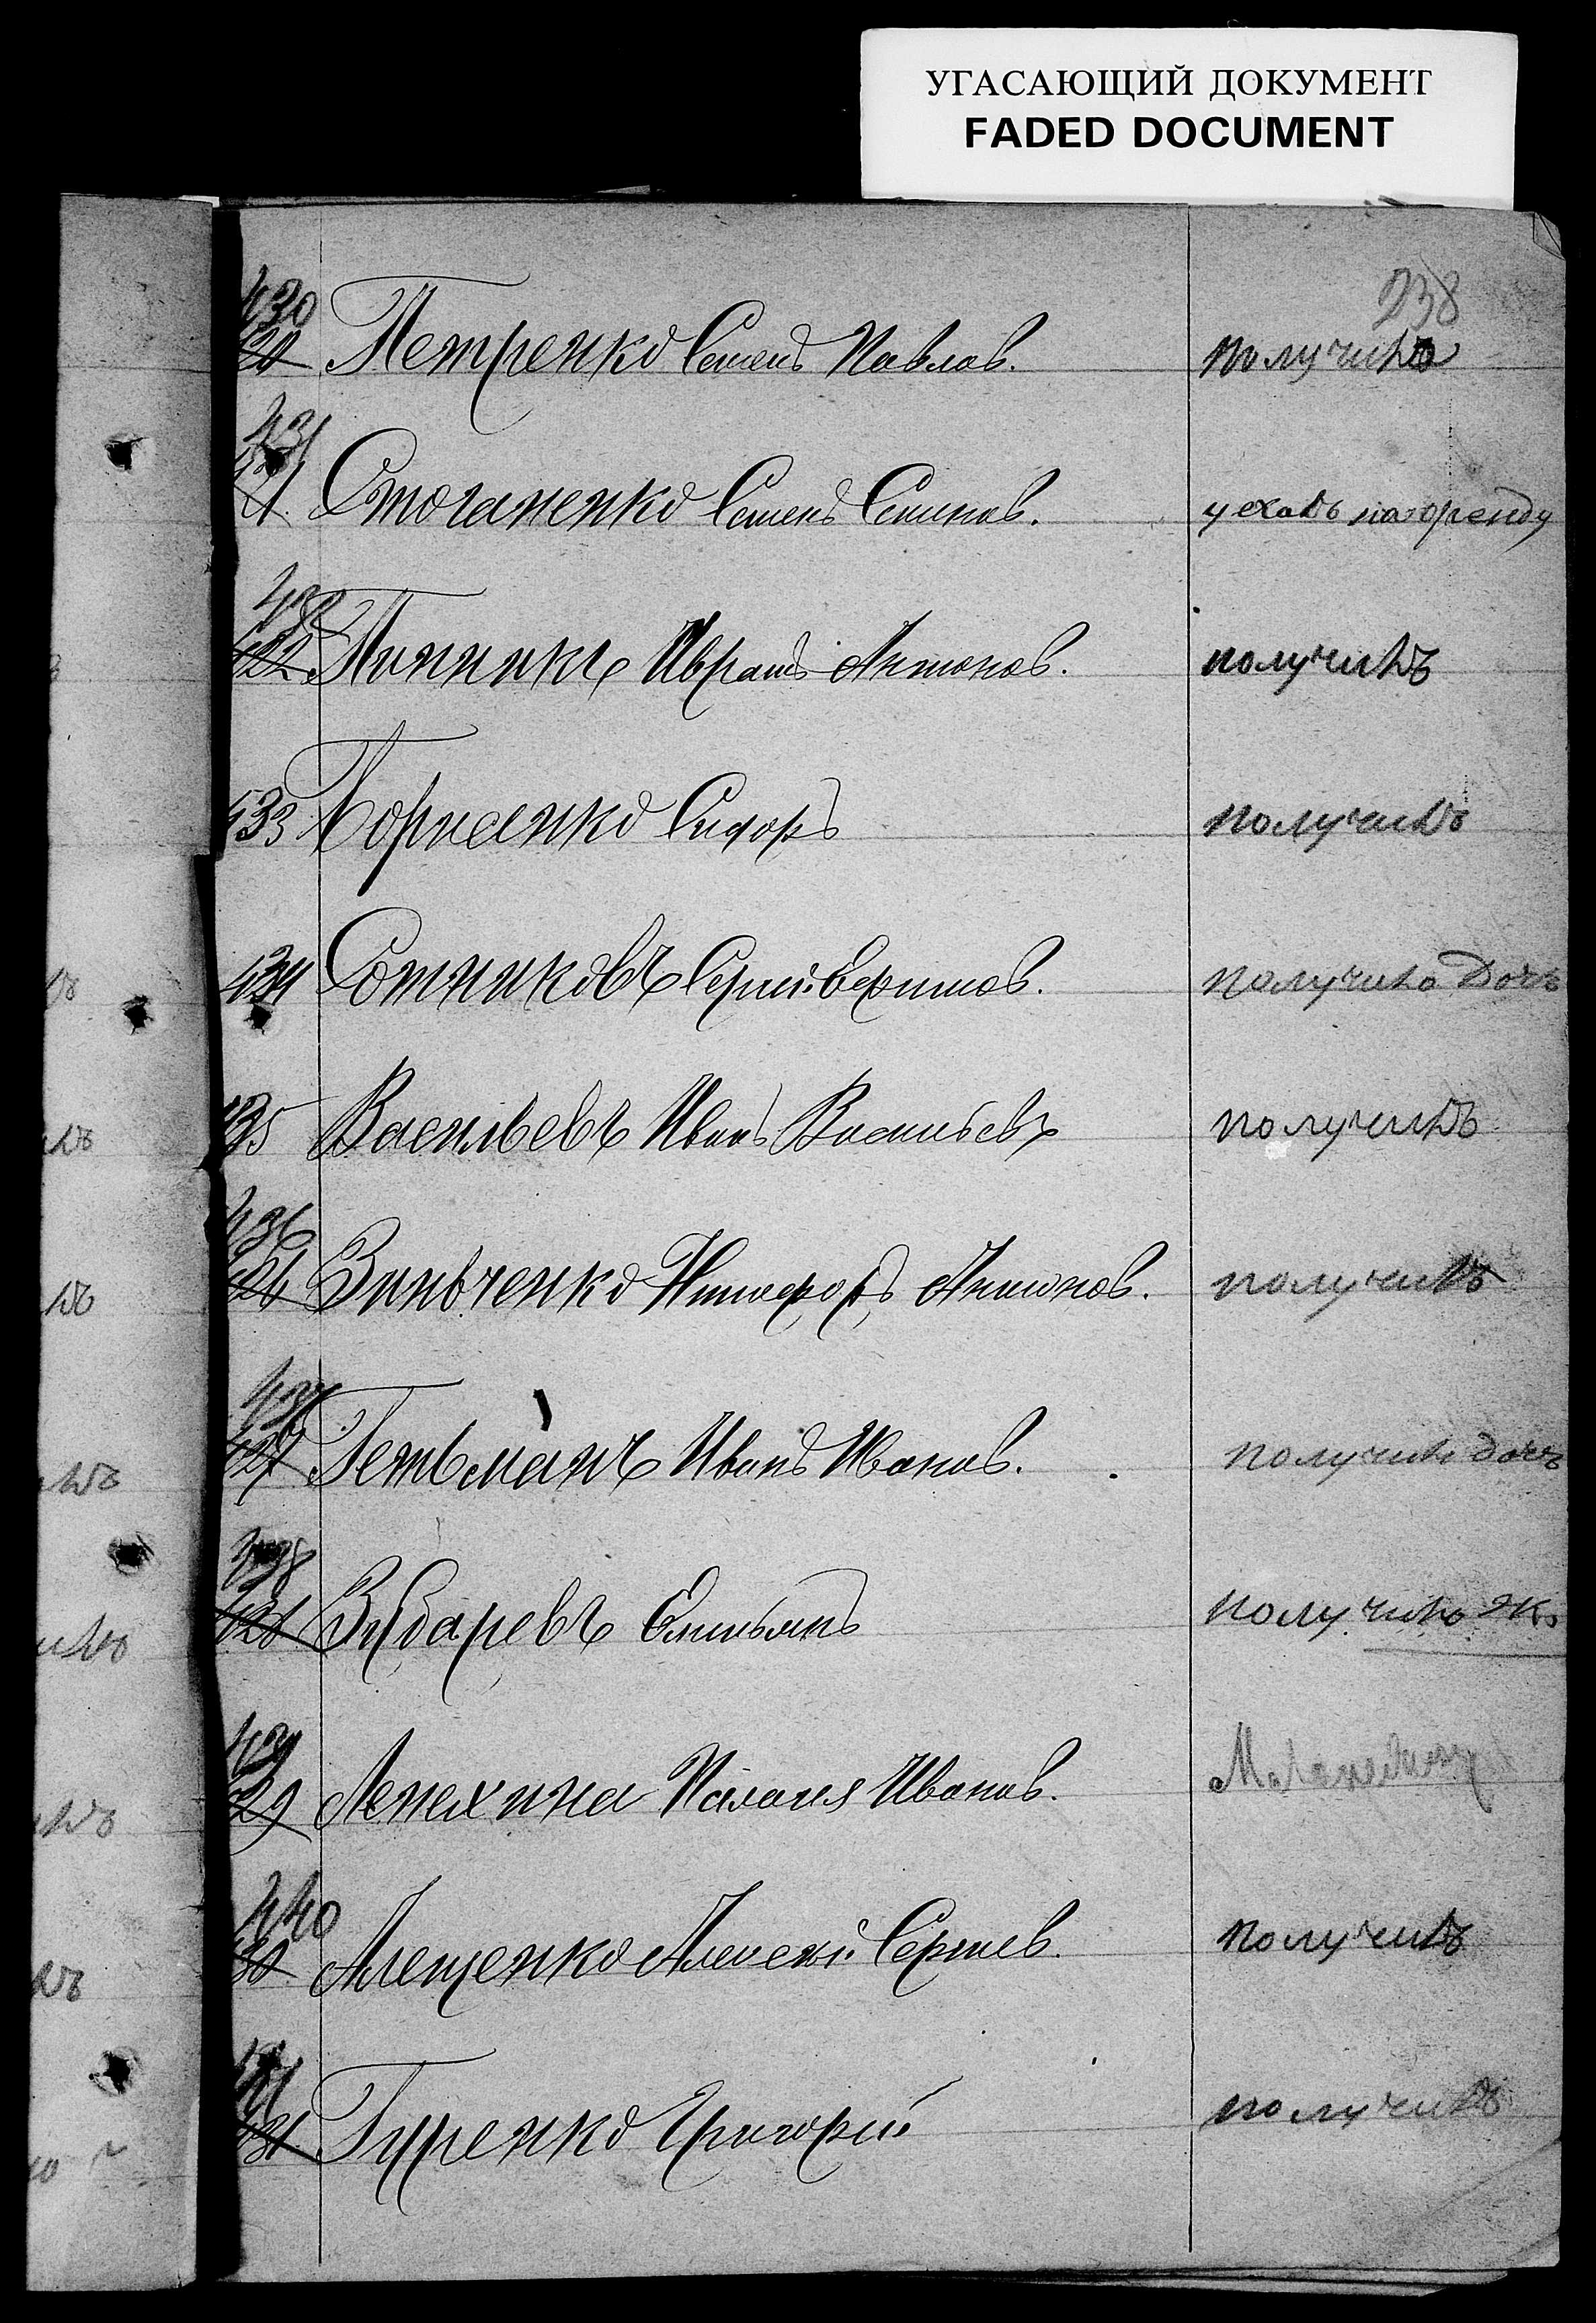 УГАСАЮЩИЙ ДОКУМЕНТ
FADED DOCUMENT
238
430 Петренко Семенъ Павлов. получилъ
431 Стоганенко Семенъ Семинов. уехалъ на оренду
Антонов. получилъ
433 Борисенко Сидоръ получилъ
434 Сотниковъ Сергей получила дочь
435 Васильевъ Иванъ Васильевъ получилъ
436 Зинченко Никифоръ Антонов. получилъ
437 Гетьманъ Иванъ Иванов. получила дочь
438 Зубаревъ Емельянъ получила
439 Лепехина Палагея Иванов.
440 Алещенко Алексей Сергиев. получилъ
441 Гуренко Григорій получилъ